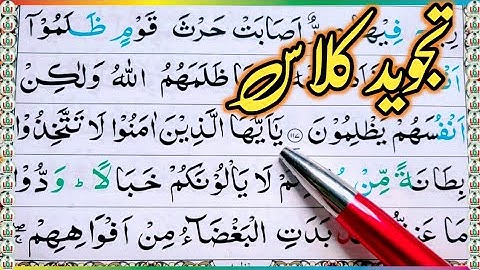 تجوید کلاس
فِيْهَا اَصَابَتْ حَرْثَ قَوْمٍ ظَلَمُوْۤا
ظَلَمَهُمُ اللّٰهُ وَلٰكِنْ
اَنْفُسَهُمْ يَظْلِمُوْنَ ۱۱۷ يٰۤاَيُّهَا الَّذِيْنَ اٰمَنُوْا لَا تَتَّخِذُوْا
بِطَانَةً مِّنْ لَا يَاْلُوْنَكُمْ خَبَالًا ؕ وَدُّوْا
مَا بَدَتِ الْبَغْضَآءُ مِنْ اَفْوَاهِهِمْ